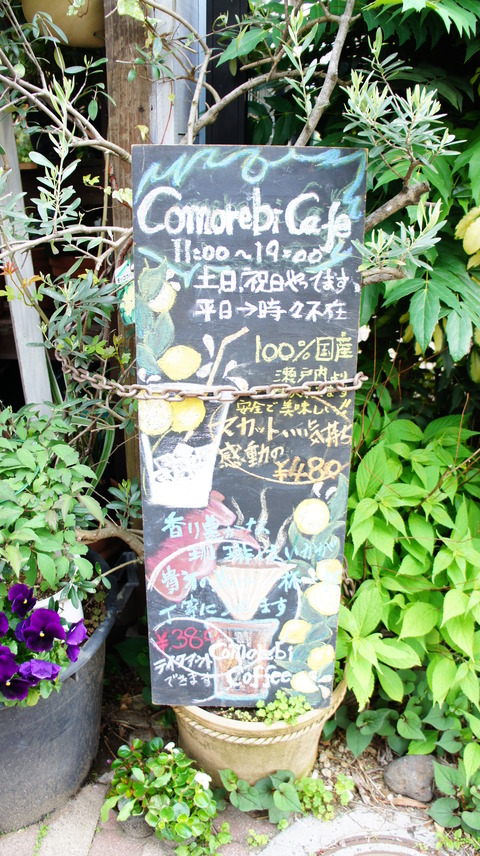 Comorebi Cafe
11:00〜19:00
土日、祝日やってます。
平日→時々不在
100%国産
瀬戸内より
安全で美味しい!!
マカットいい気持ち
感動の
¥480
香り豊かな
珈琲はいかが
杯
丁寧に ます
¥380
テイクアウト
できます
Comorebi
Coffee